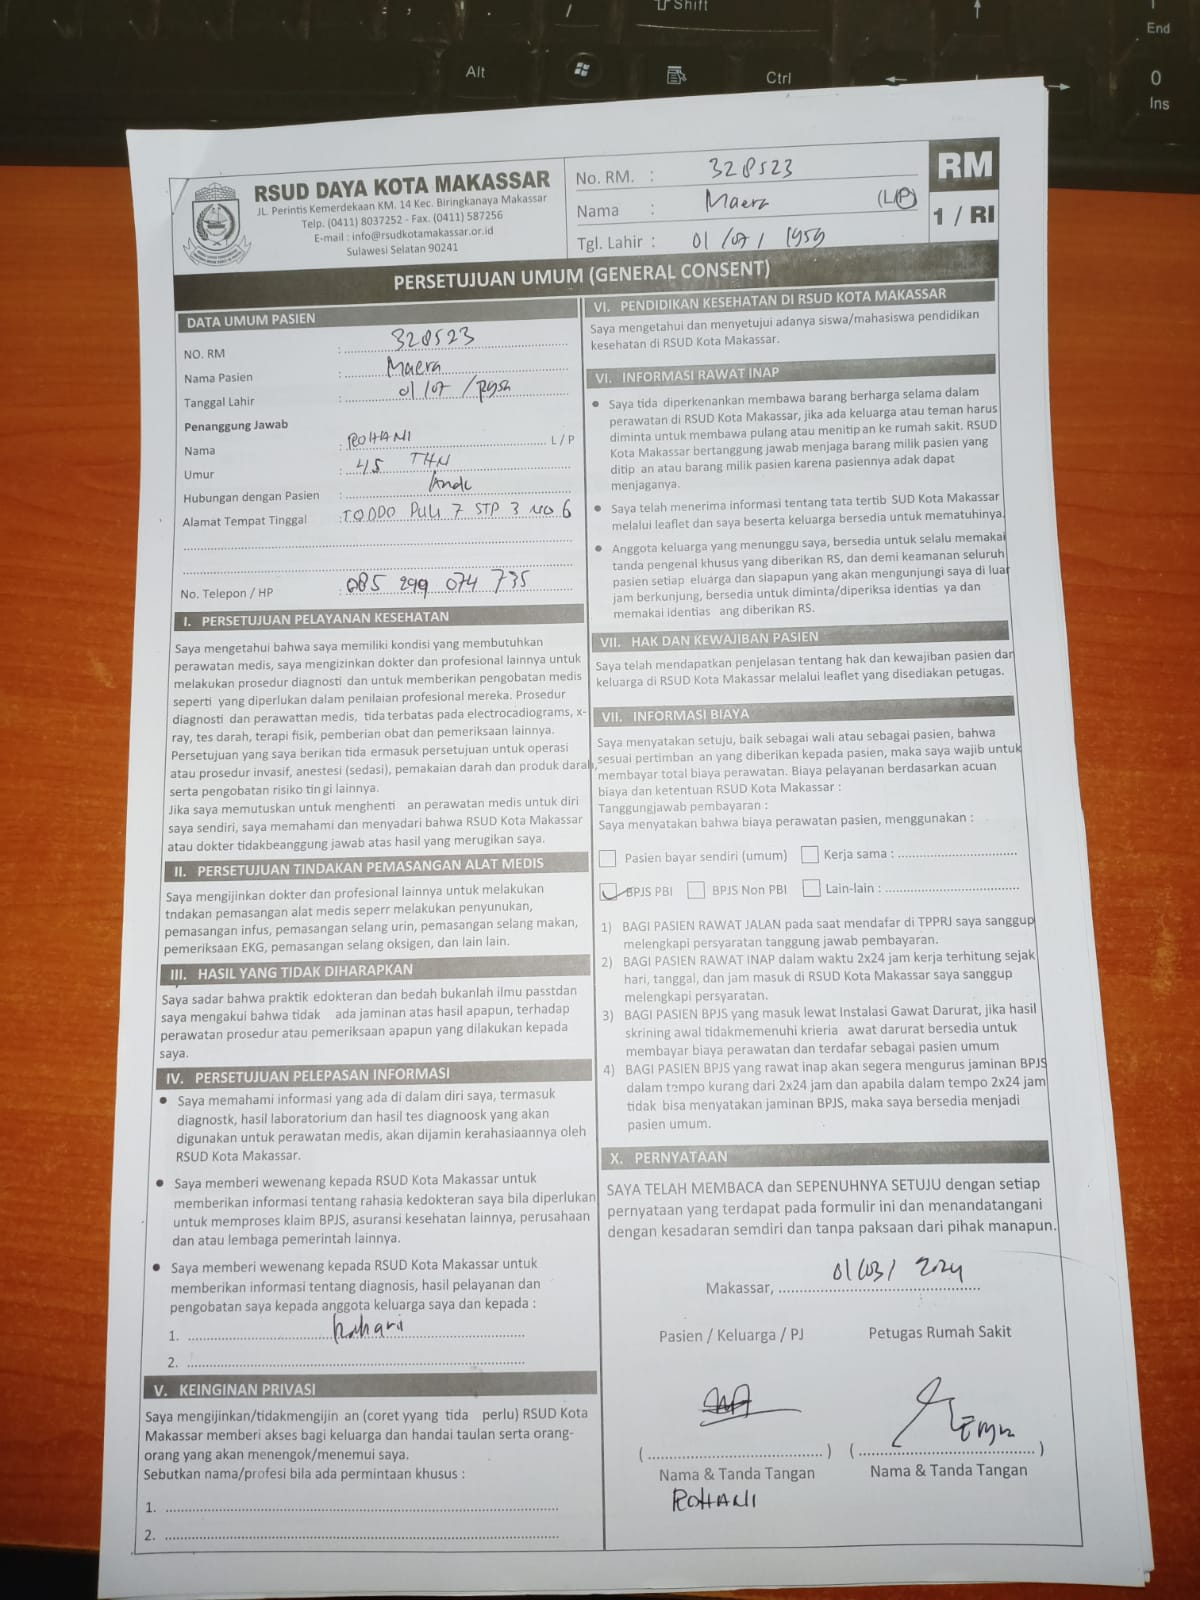 Shift
End
Alt
Ctrl
0
Ins
RSUD DAYA KOTA MAKASSAR
JL. Perintis Kemerdekaan KM. 14 Kec. Biringkanaya Makassar
Telp. (0411) 8037252 - Fax. (0411) 587256
E-mail : info@rsudkotamakassar.or.id
Sulawesi Selatan 90241
No. RM. : 328523
Nama : Maera (L/P)
Tgl. Lahir : 01 / 07 / 1959
RM
1 / RI
PERSETUJUAN UMUM (GENERAL CONSENT)
DATA UMUM PASIEN
NO. RM : 328523
Nama Pasien : Maera
Tanggal Lahir : 01 / 07 / 1959
Penanggung Jawab
Nama : ROHANI L / P
Umur : 45 THN
Hubungan dengan Pasien : Anak
Alamat Tempat Tinggal : TODDO PULI 7 STP 3 NO 6
No. Telepon / HP : 085 299 074 735
I. PERSETUJUAN PELAYANAN KESEHATAN
Saya mengetahui bahwa saya memiliki kondisi yang membutuhkan
perawatan medis, saya mengizinkan dokter dan profesional lainnya untuk
melakukan prosedur diagnosti dan untuk memberikan pengobatan medis
seperti yang diperlukan dalam penilaian profesional mereka. Prosedur
diagnosti dan perawattan medis, tida terbatas pada electrocadiograms, x-
ray, tes darah, terapi fisik, pemberian obat dan pemeriksaan lainnya.
Persetujuan yang saya berikan tida ermasuk persetujuan untuk operasi
atau prosedur invasif, anestesi (sedasi), pemakaian darah dan produk darah,
serta pengobatan risiko tin gi lainnya.
Jika saya memutuskan untuk menghenti an perawatan medis untuk diri
saya sendiri, saya memahami dan menyadari bahwa RSUD Kota Makassar
atau dokter tidakbeanggung jawab atas hasil yang merugikan saya.
II. PERSETUJUAN TINDAKAN PEMASANGAN ALAT MEDIS
Saya mengijinkan dokter dan profesional lainnya untuk melakukan
tndakan pemasangan alat medis seperr melakukan penyunukan,
pemasangan infus, pemasangan selang urin, pemasangan selang makan,
pemeriksaan EKG, pemasangan selang oksigen, dan lain lain.
III. HASIL YANG TIDAK DIHARAPKAN
Saya sadar bahwa praktik edokteran dan bedah bukanlah ilmu passtdan
saya mengakui bahwa tidak ada jaminan atas hasil apapun, terhadap
perawatan prosedur atau pemeriksaan apapun yang dilakukan kepada
saya.
IV. PERSETUJUAN PELEPASAN INFORMASI
• Saya memahami informasi yang ada di dalam diri saya, termasuk
diagnostk, hasil laboratorium dan hasil tes diagnoosk yang akan
digunakan untuk perawatan medis, akan dijamin kerahasiaannya oleh
RSUD Kota Makassar.
• Saya memberi wewenang kepada RSUD Kota Makassar untuk
memberikan informasi tentang rahasia kedokteran saya bila diperlukan
untuk memproses klaim BPJS, asuransi kesehatan lainnya, perusahaan
dan atau lembaga pemerintah lainnya.
• Saya memberi wewenang kepada RSUD Kota Makassar untuk
memberikan informasi tentang diagnosis, hasil pelayanan dan
pengobatan saya kepada anggota keluarga saya dan kepada :
1. Rohani
2.
V. KEINGINAN PRIVASI
Saya mengijinkan/tidakmengijin an (coret yyang tida perlu) RSUD Kota
Makassar memberi akses bagi keluarga dan handai taulan serta orang-
orang yang akan menengok/menemui saya.
Sebutkan nama/profesi bila ada permintaan khusus :
1.
2.
VI. PENDIDIKAN KESEHATAN DI RSUD KOTA MAKASSAR
Saya mengetahui dan menyetujui adanya siswa/mahasiswa pendidikan
kesehatan di RSUD Kota Makassar.
VI. INFORMASI RAWAT INAP
• Saya tida diperkenankan membawa barang berharga selama dalam
perawatan di RSUD Kota Makassar, jika ada keluarga atau teman harus
diminta untuk membawa pulang atau menitip an ke rumah sakit. RSUD
Kota Makassar bertanggung jawab menjaga barang milik pasien yang
ditip an atau barang milik pasien karena pasiennya adak dapat
menjaganya.
• Saya telah menerima informasi tentang tata tertib SUD Kota Makassar
melalui leaflet dan saya beserta keluarga bersedia untuk mematuhinya.
• Anggota keluarga yang menunggu saya, bersedia untuk selalu memakai
tanda pengenal khusus yang diberikan RS, dan demi keamanan seluruh
pasien setiap eluarga dan siapapun yang akan mengunjungi saya di luar
jam berkunjung, bersedia untuk diminta/diperiksa identias ya dan
memakai identias ang diberikan RS.
VII. HAK DAN KEWAJIBAN PASIEN
Saya telah mendapatkan penjelasan tentang hak dan kewajiban pasien dan
keluarga di RSUD Kota Makassar melalui leaflet yang disediakan petugas.
VII. INFORMASI BIAYA
Saya menyatakan setuju, baik sebagai wali atau sebagai pasien, bahwa
sesuai pertimban an yang diberikan kepada pasien, maka saya wajib untuk
membayar total biaya perawatan. Biaya pelayanan berdasarkan acuan
biaya dan ketentuan RSUD Kota Makassar :
Tanggungjawab pembayaran :
Saya menyatakan bahwa biaya perawatan pasien, menggunakan :
Pasien bayar sendiri (umum) Kerja sama :
BPJS PBI BPJS Non PBI Lain-lain :
1) BAGI PASIEN RAWAT JALAN pada saat mendafar di TPPRJ saya sanggup
melengkapi persyaratan tanggung jawab pembayaran.
2) BAGI PASIEN RAWAT INAP dalam waktu 2x24 jam kerja terhitung sejak
hari, tanggal, dan jam masuk di RSUD Kota Makassar saya sanggup
melengkapi persyaratan.
3) BAGI PASIEN BPJS yang masuk lewat Instalasi Gawat Darurat, jika hasil
skrining awal tidakmemenuhi krieria awat darurat bersedia untuk
membayar biaya perawatan dan terdafar sebagai pasien umum
4) BAGI PASIEN BPJS yang rawat inap akan segera mengurus jaminan BPJS
dalam tempo kurang dari 2x24 jam dan apabila dalam tempo 2x24 jam
tidak bisa menyatakan jaminan BPJS, maka saya bersedia menjadi
pasien umum.
X. PERNYATAAN
SAYA TELAH MEMBACA dan SEPENUHNYA SETUJU dengan setiap
pernyataan yang terdapat pada formulir ini dan menandatangani
dengan kesadaran semdiri dan tanpa paksaan dari pihak manapun.
Makassar, 01/03/ 2024
Pasien / Keluarga / PJ Petugas Rumah Sakit
( ) ( )
Nama & Tanda Tangan Nama & Tanda Tangan
ROHANI